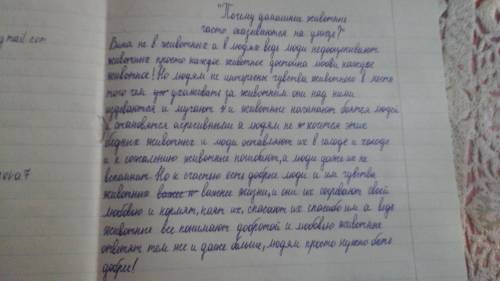 "Почему домашние животные
часто оказываются на улице?"
gmail.com
Вина не в животных и в людях ведь люди недооценивают
животных просто каждое животное достойно любви каждое
животное! Но людям не интересны чувства животного в место
того чем уха ухаживать за животным они над ними
издеваются и мучают и животные начинают боятся людей
и становятся агресивными а людям не хочется этих
бедных животных и люди оставляют их в голоде и холоде
и к сожалению животные погибают, а люди даже их не
вспомнят. Но к счастью есть добрые люди и им чувства
животных важнее жизни, и они их согревают своей
любовью и кормят, поят их, спасают их спасибо им а ведь
животные все понимают добротой и любовью животные
ответят тем же и даже больше, людям просто нужно быть
добрее!